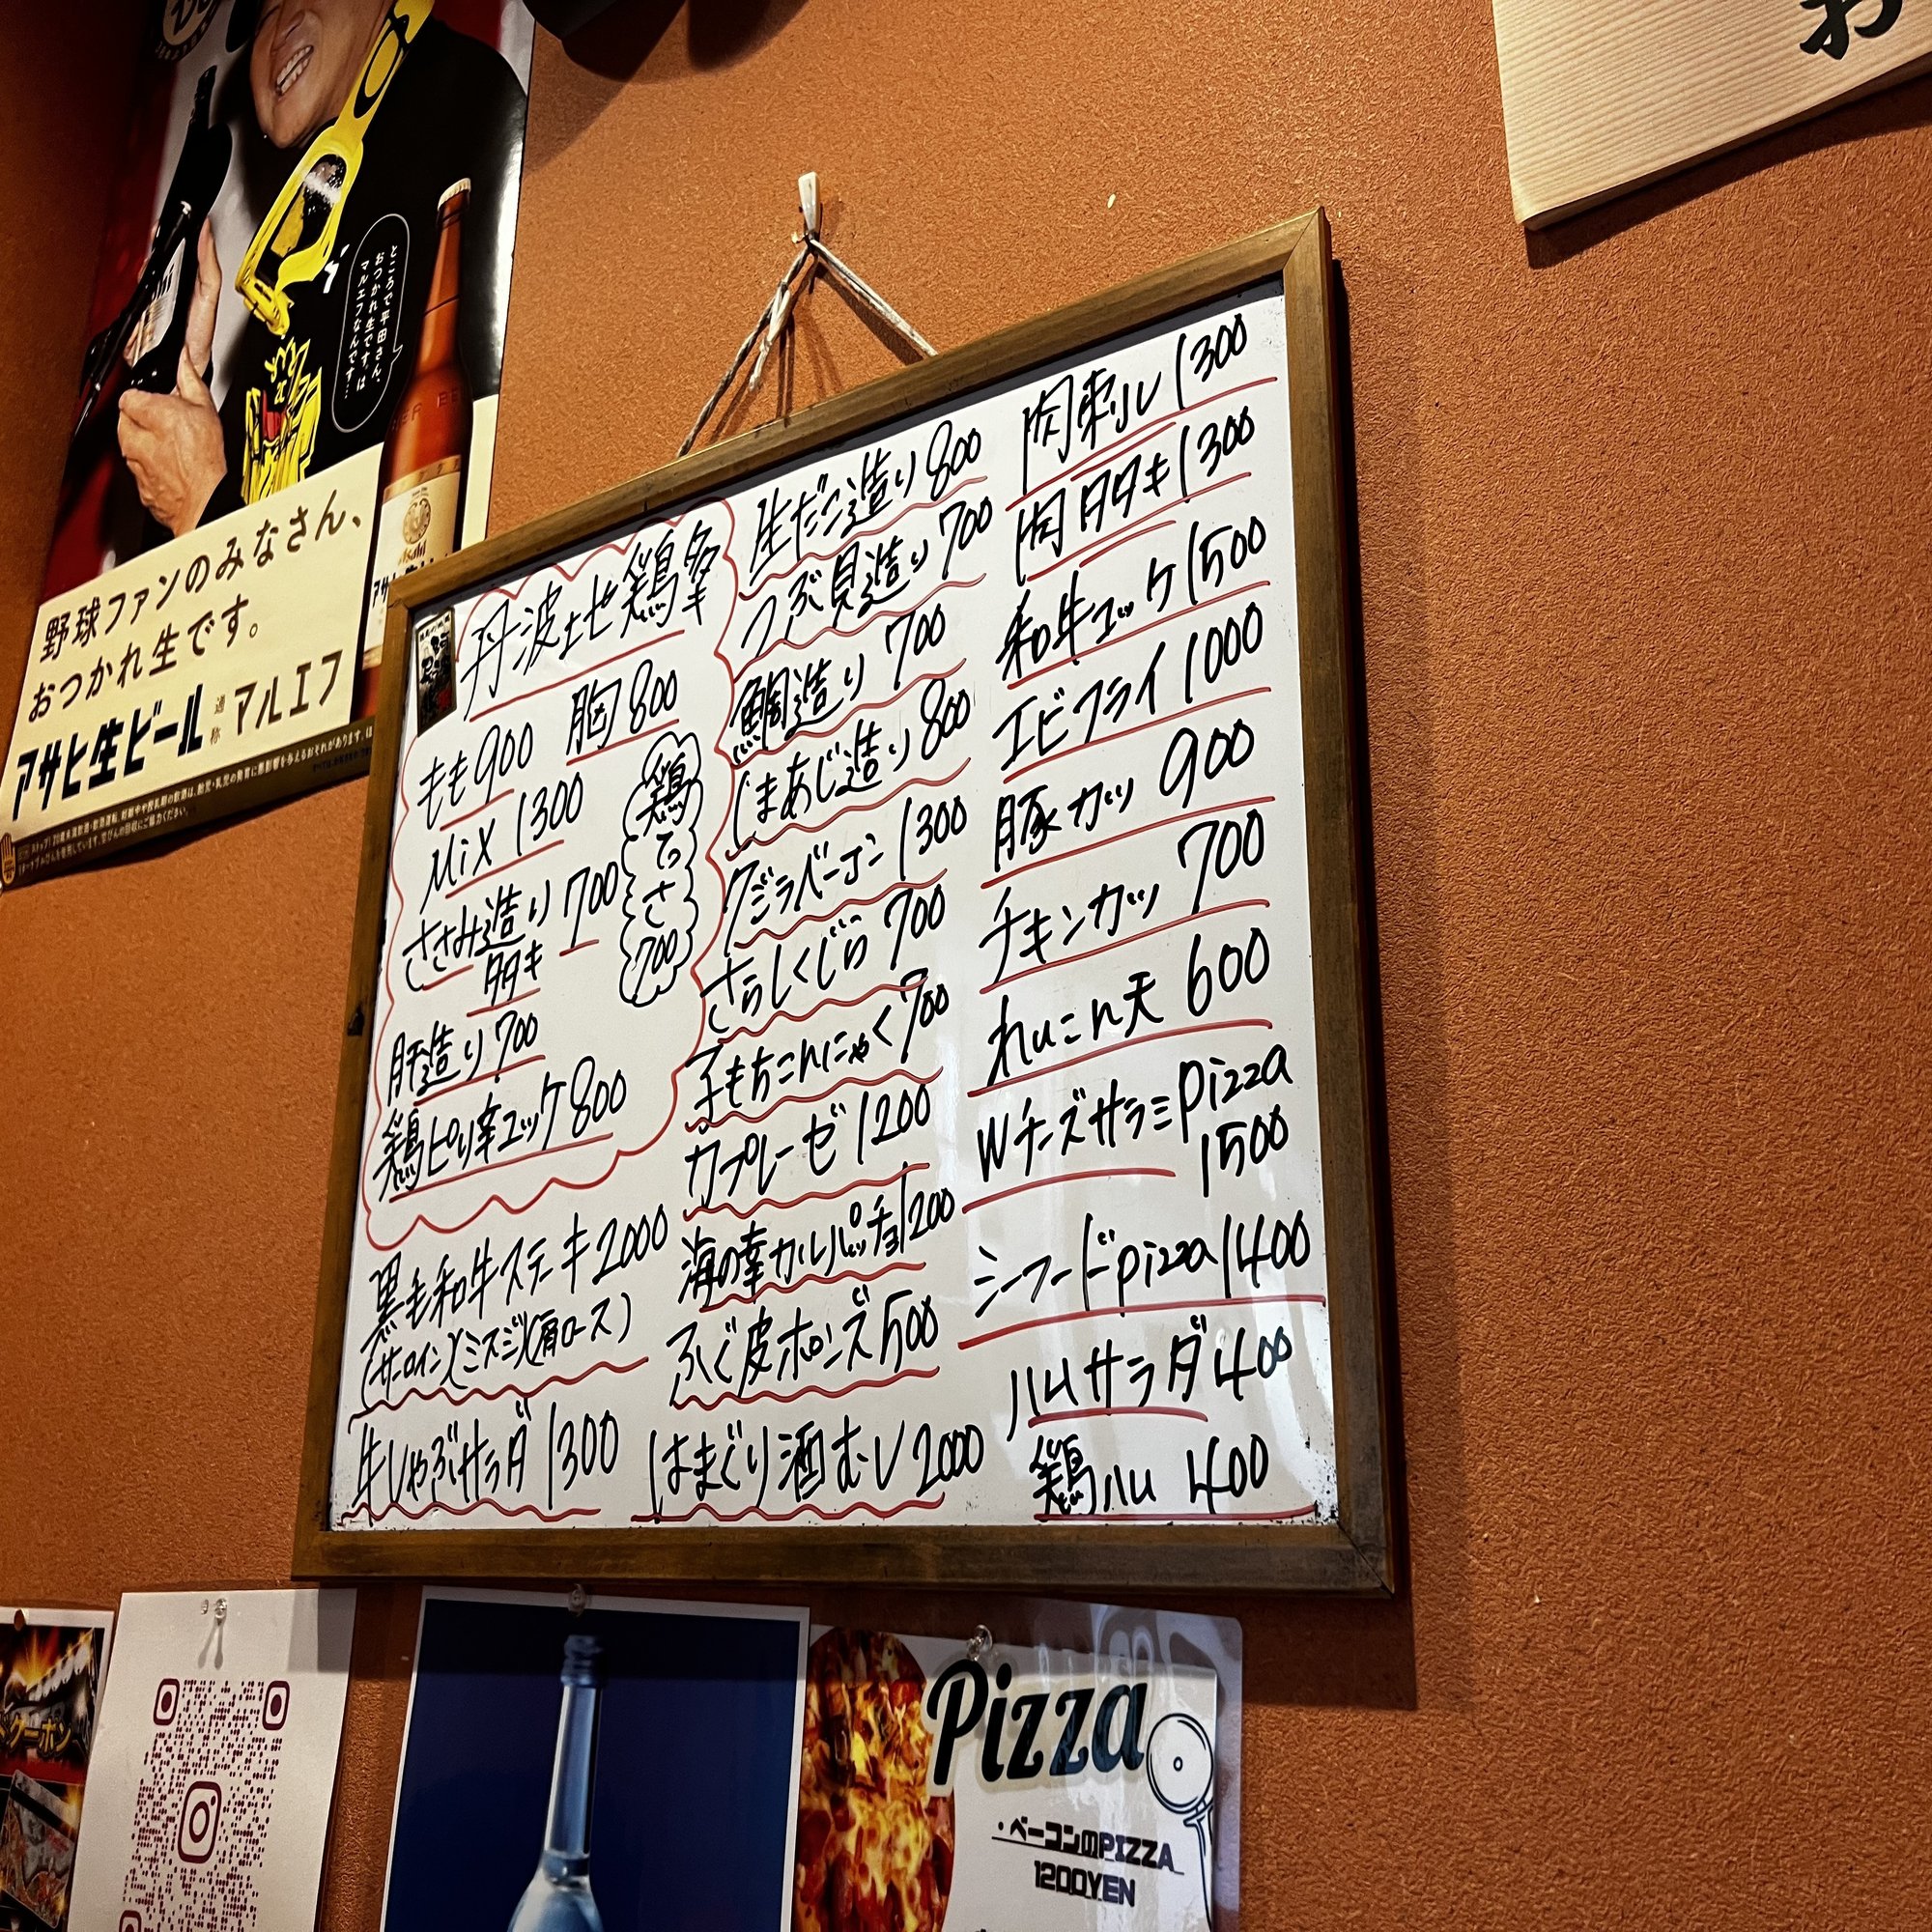 ところで平田さん、
おつかれ生です。は
マルエフなんです…
野球ファンのみなさん、
おつかれ生です。
アサヒ生ビール 通称 マルエフ
お
丹波地鶏
もも900 胸800
Mix 1300
ささみ造り 700
タタキ
鶏
てっ
さ
700
肝造り 700
鶏ピリ辛ユッケ800
黒毛和牛ステーキ2000
(サーロイン)(ミスジ)(肩ロース)
牛しゃぶサラダ 1300
生だこ造り 800
つぶ貝造り 700
鯛造り 700
しまあじ造り 800
クジラベーコン 1300
さらしくじら 700
子もちこんにゃく700
カプレーゼ 1200
海の幸カルパッチョ1200
ふぐ皮ポンズ500
はまぐり酒むし2000
肉刺し 1300
肉タタキ 1300
和牛ユッケ 1500
エビフライ 1000
豚カツ 900
チキンカツ 700
れんこん天 600
Wチーズサラミpizza
1500
シーフードpizza 1400
ハムサラダ 400
鶏ハム 400
クーポン
Pizza
・ベーコンのPIZZA
1200YEN